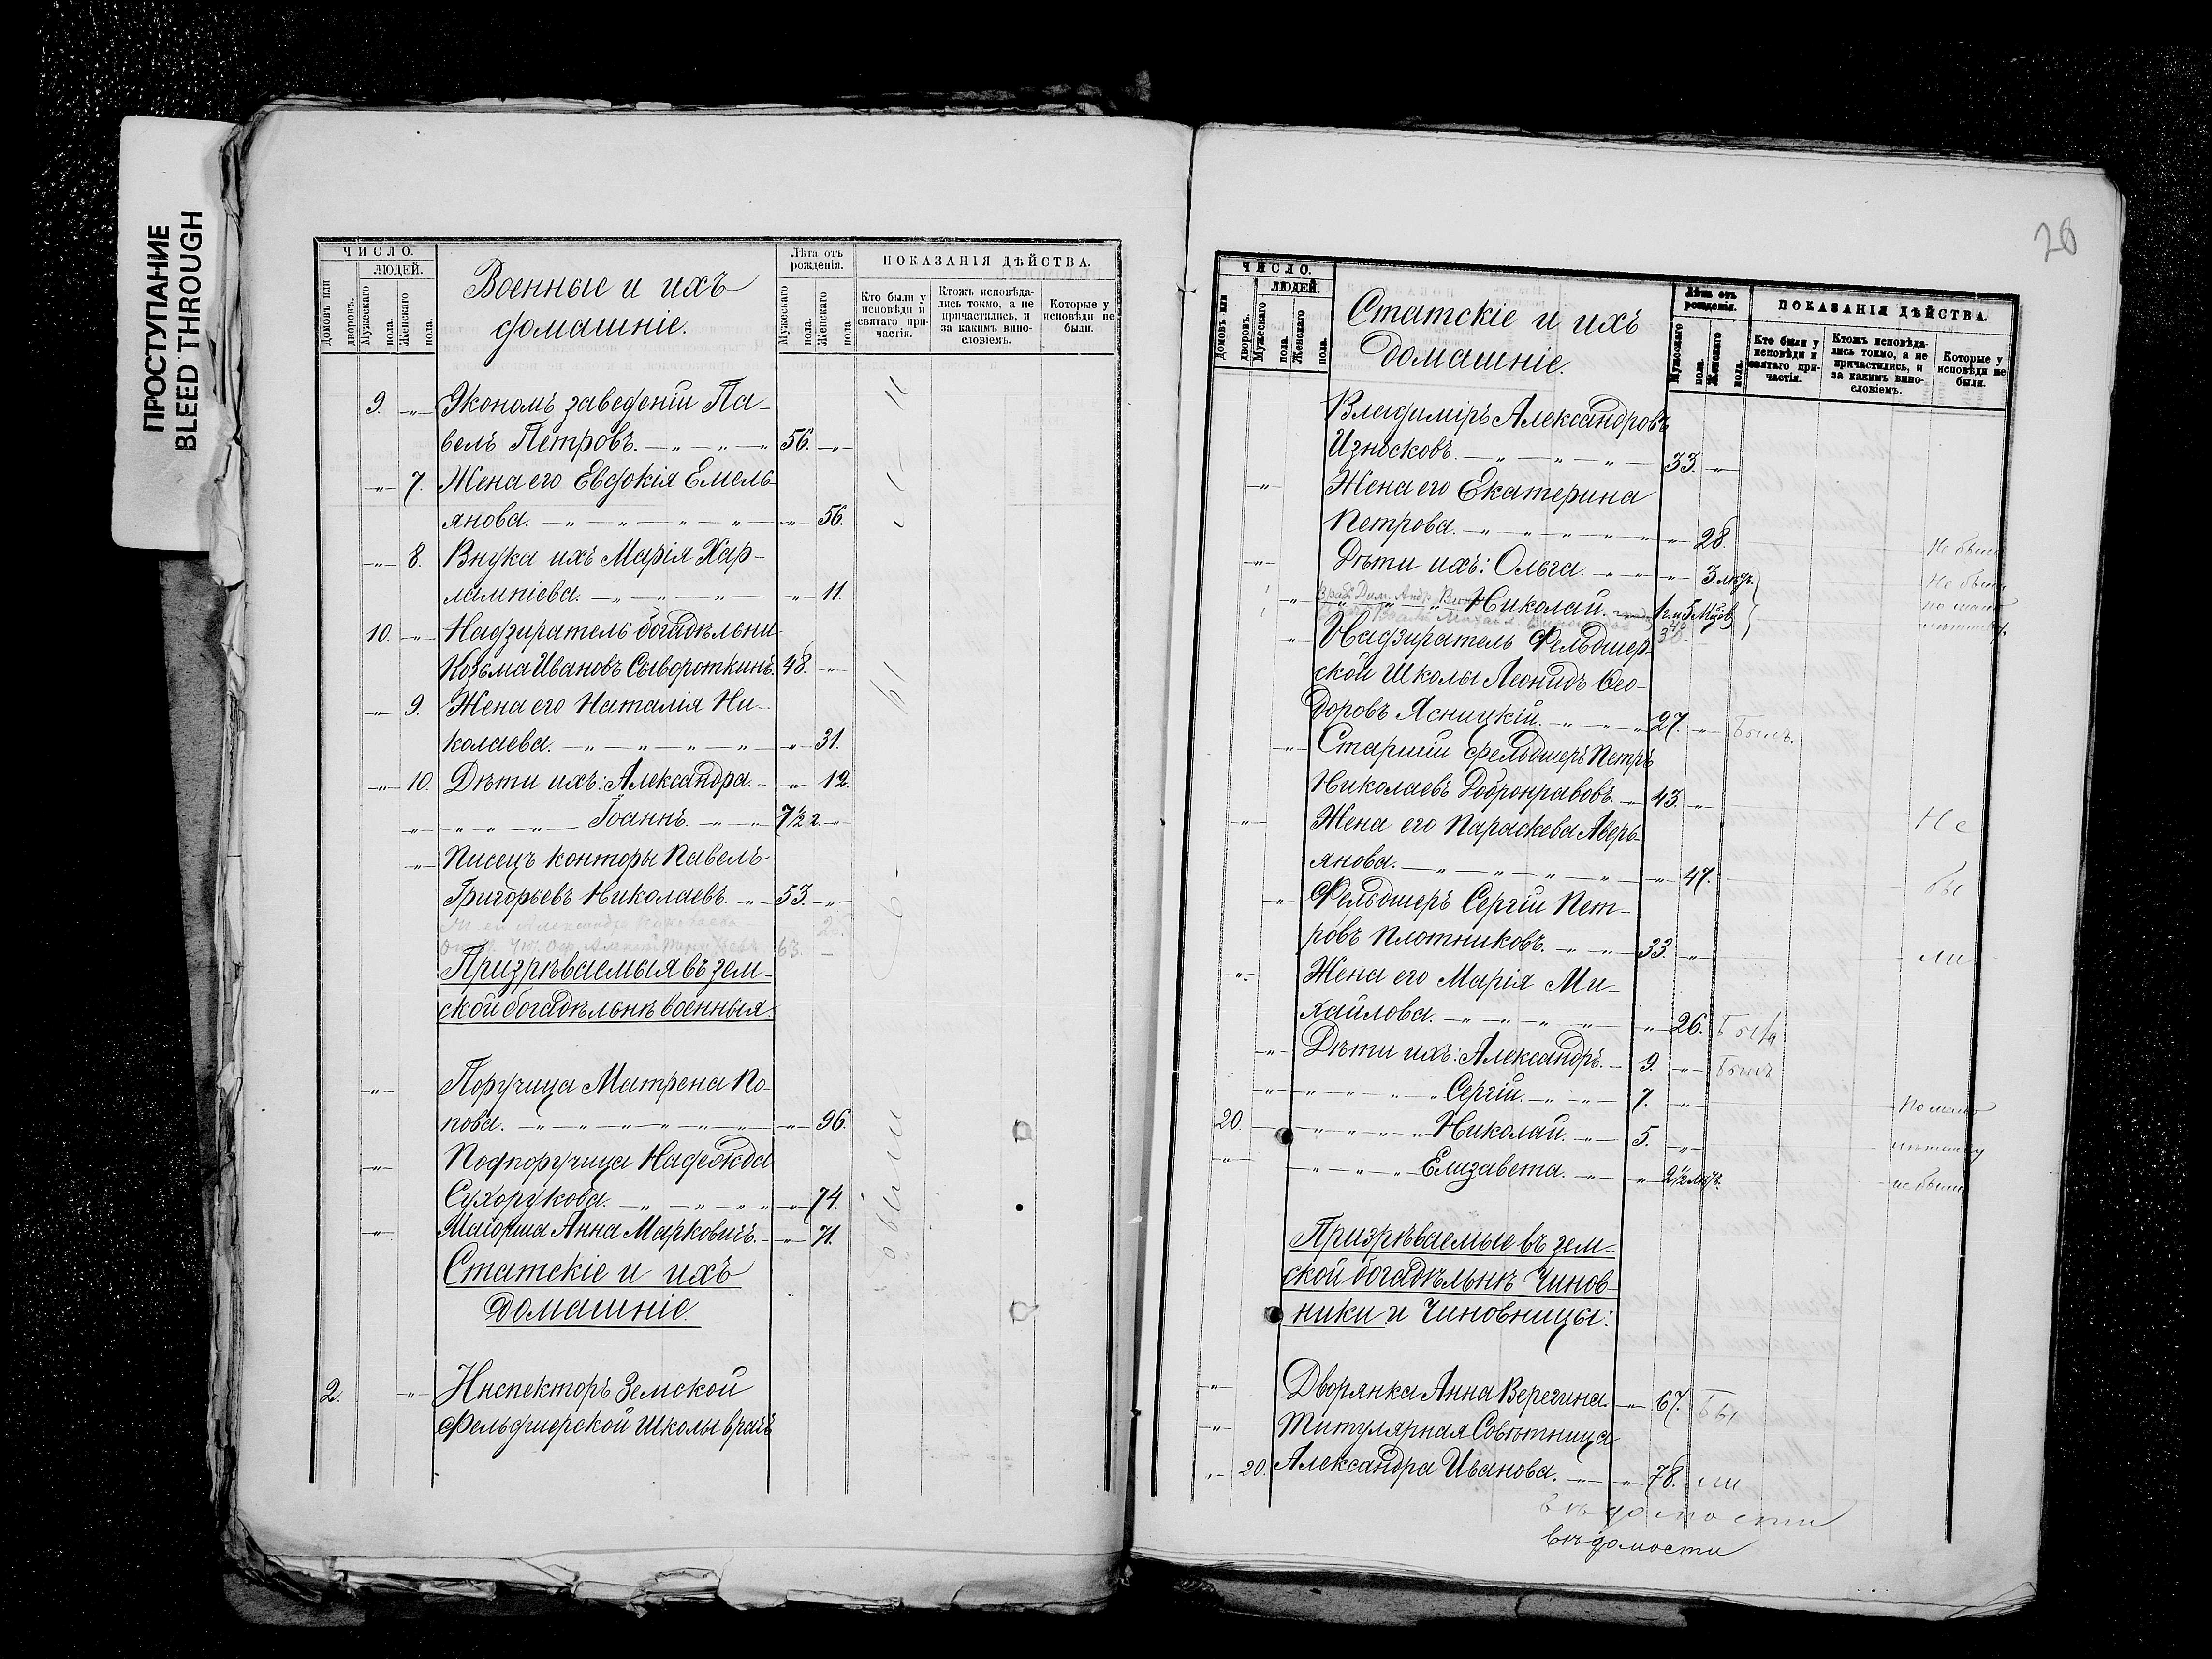 ПРОСТУПАНИЕ
BLEED THROUGH
ЧИСЛО.
ЛЮДЕЙ.
Домовъ или дворовъ.
Мужескаго пола.
Женскаго пола.
Военные и ихъ
домашніе.
Лѣта отъ рожденія.
Мужескаго пола.
Женскаго пола.
ПОКАЗАНІЯ ДѢЙСТВА.
Кто были у исповѣди и святаго причастія.
Ктожъ исповѣдались токмо, а не причастились, и за какимъ винословіемъ.
Которые у исповѣди не были.
9. -„- Экономъ заведеній Па-
велъ Петровъ. -„- 56. -„-
-„- 7. Жена его Евдокія Емель-
янова. -„- 56.
-„- 8. Внука ихъ Марія Хар-
лампіева. -„- 11.
10. -„- Надзиратель богадѣльни
Козьма Ивановъ Сывороткинъ. 48. -„-
-„- 9. Жена его Наталія Ни-
колаева. -„- 31.
-„- 10. Дѣти ихъ: Александра. -„- 12.
-„- Іоаннъ. -„- 7½ -„-
-„- Писецъ конторы Павелъ
Григорьевъ Николаевъ. -„- 53. -„-
63. -
Призрѣваемыя въ зем-
ской богадѣльнѣ военныя
-„- Поручица Матрена По-
пова. -„- 96.
-„- Подпоручица Надежда
Сухорукова. -„- 74.
-„- Маіорша Анна Марковичъ. -„- 71.
были
Статскіе и ихъ
домашніе.
2. -„- Инспекторъ Земской
Фельдшерской Школы врачъ
20
ЧИСЛО.
ЛЮДЕЙ.
Домовъ или дворовъ.
Мужескаго пола.
Женскаго пола.
Статскіе и ихъ
домашніе.
Лѣта отъ рожденія.
Мужескаго пола.
Женскаго пола.
ПОКАЗАНІЯ ДѢЙСТВА.
Кто были у исповѣди и святаго причастія.
Ктожъ исповѣдались токмо, а не причастились, и за какимъ винословіемъ.
Которые у исповѣди не были.
Владиміръ Александровъ
Износковъ. -„- 33. -„-
-„- Жена его Екатерина
Петрова. -„- 28. Не была
-„- Дѣти ихъ: Ольга. -„- 3 лѣтъ. Не были
-„- Николай. 1 г. и 5 м-цов по мало
лѣтству
-„- Надзиратель Фельдшер-
ской Школы Леонидъ Ѳео-
доровъ Ясницкій. -„- 27. -„- Былъ.
-„- Старшій фельдшеръ Петръ
Николаевъ Добронравовъ. -„- 43. -„-
-„- Жена его Параскева Аверь- Не
янова. -„- 47. бы
-„- Фельдшеръ Сергій Пет-
ровъ Плотниковъ. -„- 33. -„- ли
-„- Жена его Марія Ми-
хайлова. -„- 26. Была
-„- Дѣти ихъ: Александръ. - 9. -„- Былъ
-„- Сергій. -„- 7. -„- По мало
20. -„- Николай. -„- 5. -„- лѣтству
-„- Елизавета. -„- 2½ лѣтъ. не были
Призрѣваемые въ зем-
ской богадѣльнѣ Чинов-
ники и Чиновницы:
-„- Дворянка Анна Веречина. -„- 67. Бы
-„- Титулярная Совѣтница
-„- 20. Александра Иванова. -„- 78. ли
вѣдомости
вѣдомости